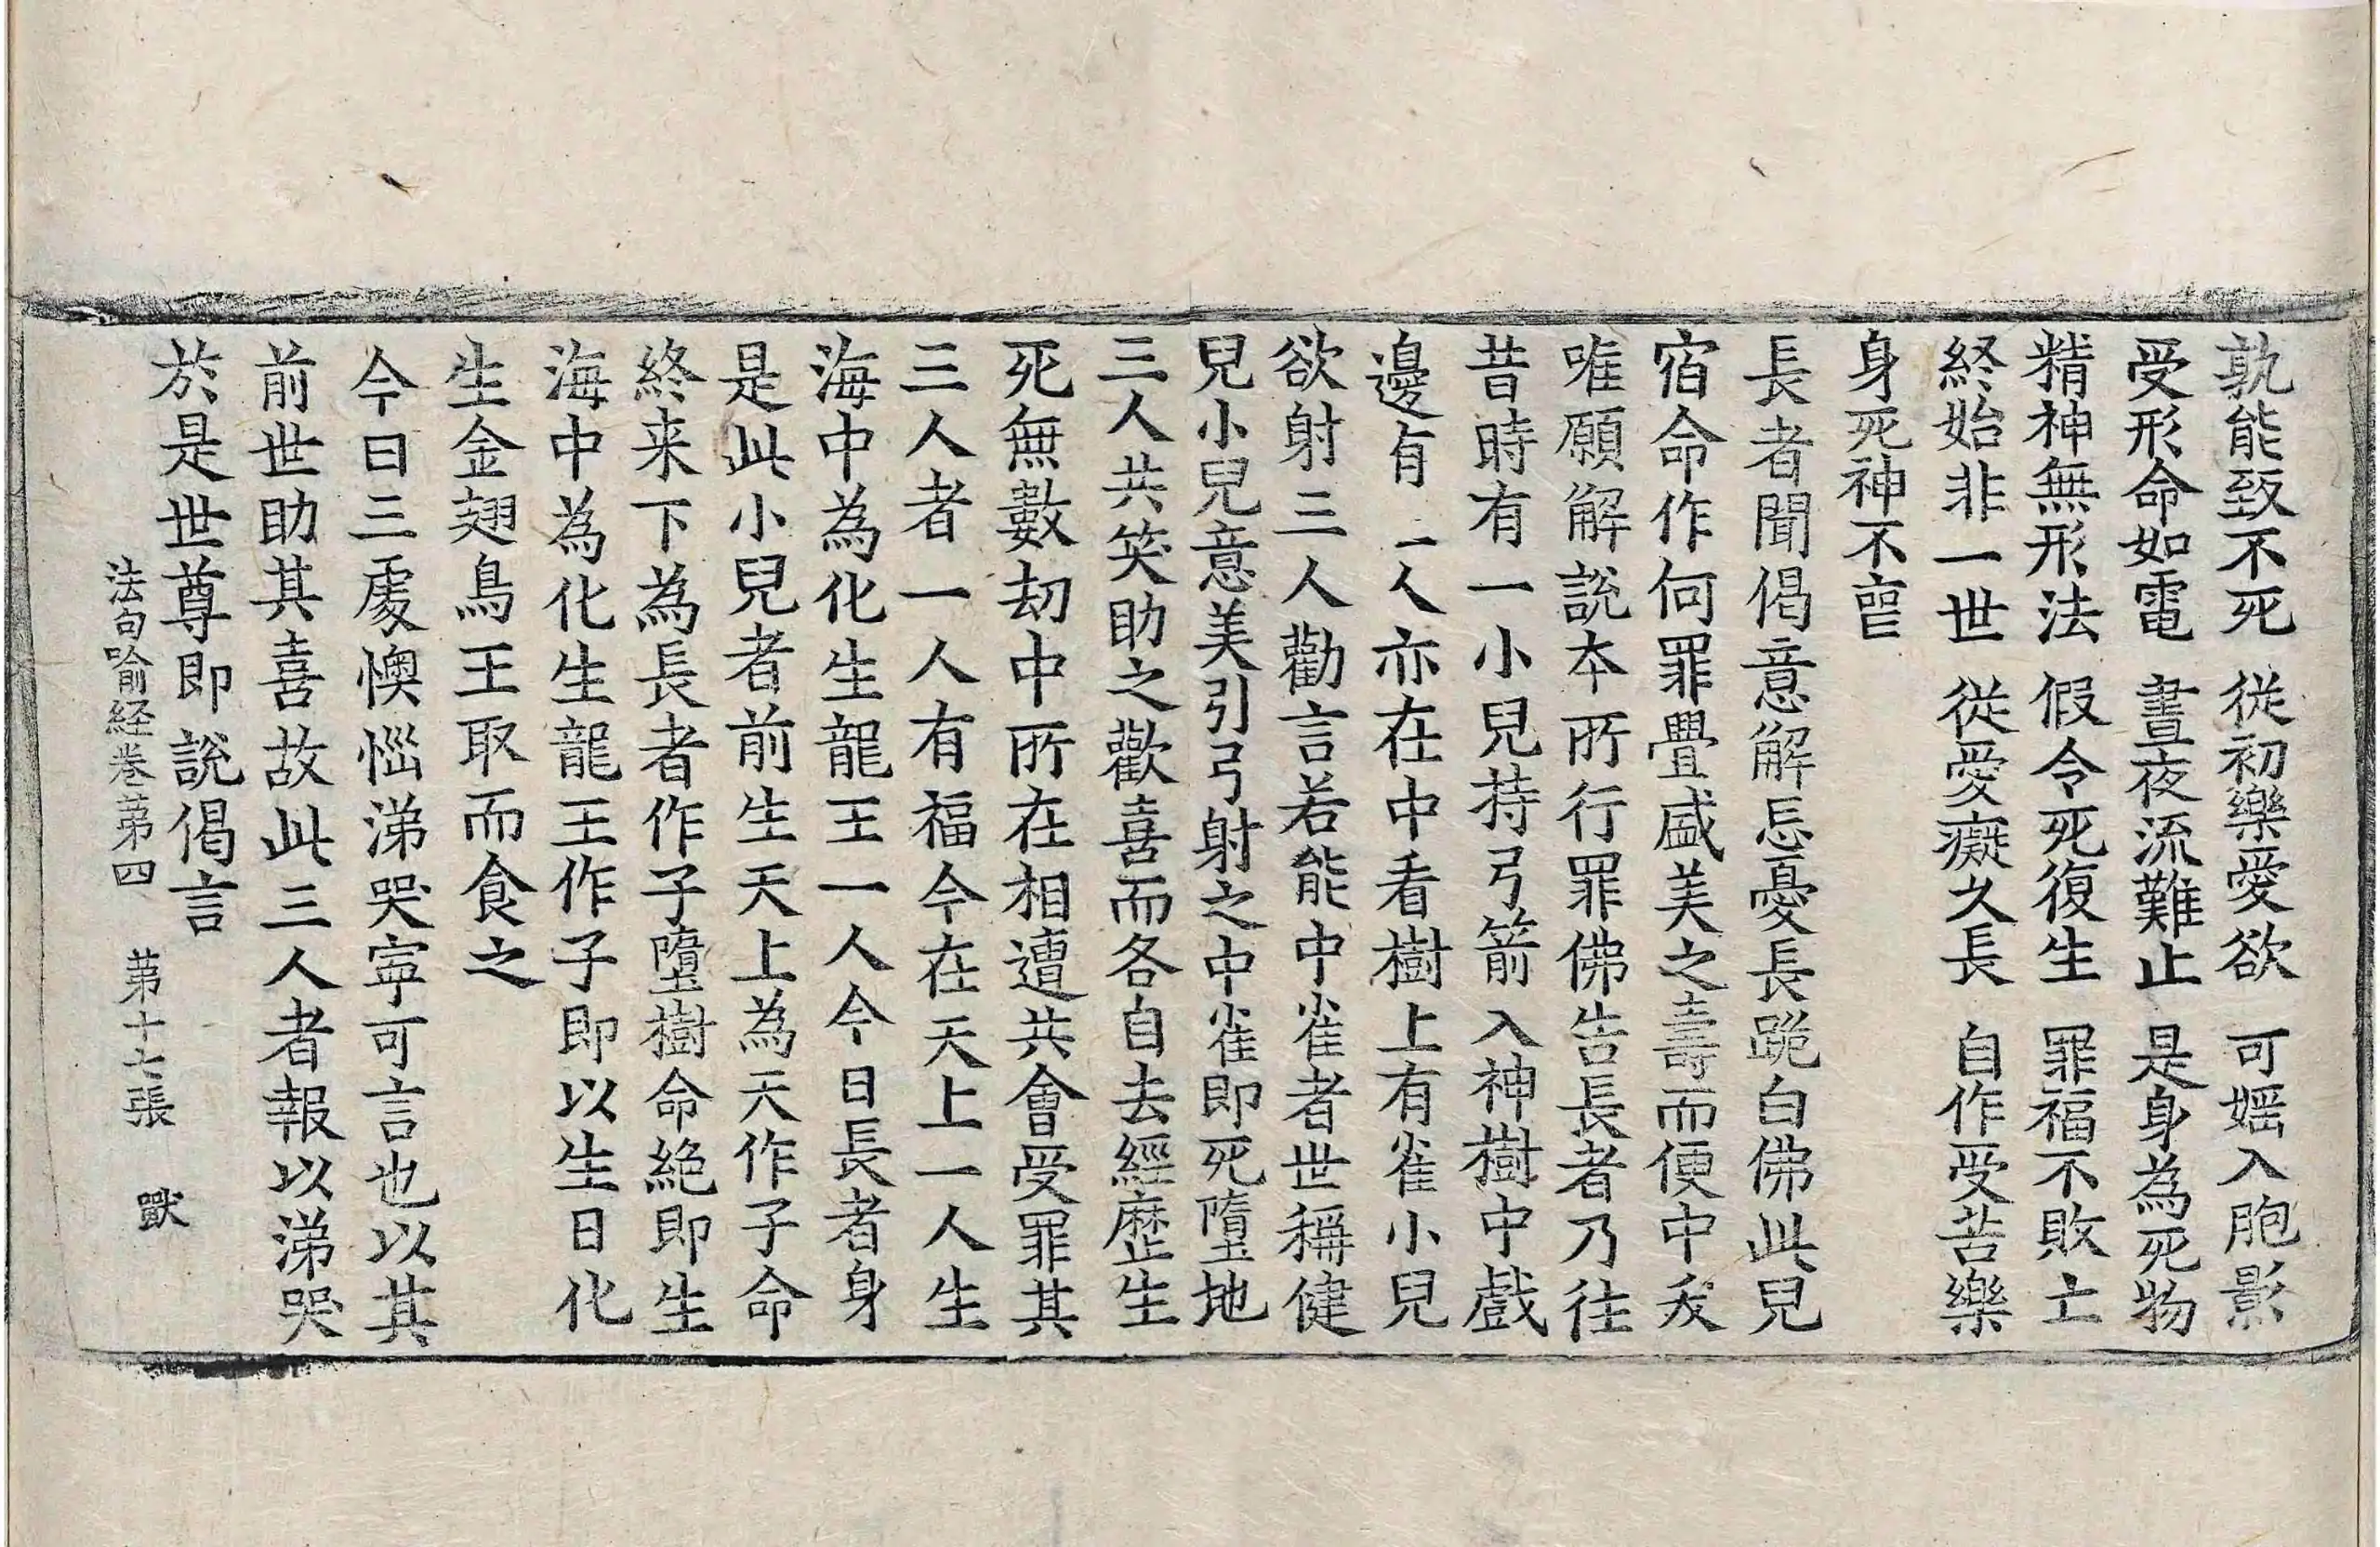 孰能致不死　從初樂愛欲　可婬入胞影
受形命如電　晝夜流難止　是身為死物
精神無形法　假令死復生　罪福不敗亡
終始非一世　從愛癡久長　自作受苦樂
身死神不喪
長者聞偈意解忘憂長跪白佛此兒
宿命作何罪舋盛美之壽而便中夭
唯願解說本所行罪佛告長者乃往
昔時有一小兒持弓箭入神樹中戲
邊有二人亦在中看樹上有雀小兒
欲射三人勸言若能中雀者世稱健
兒小兒意美引弓射之中雀即死墮地
三人共笑助之歡喜而各自去經歷生
死無數劫中所在相遭共會受罪其
三人者一人有福今在天上一人生
海中為化生龍王一人今日長者身
是此小兒者前生天上為天作子命
終来下為長者作子墮樹命絕即生
海中為化生龍王作子即以生日化
生金翅鳥王取而食之
今日三處懊惱涕哭寧可言也以其
前世助其喜故此三人者報以涕哭
於是世尊即說偈言
法句喻経卷第四　第十七張　獸